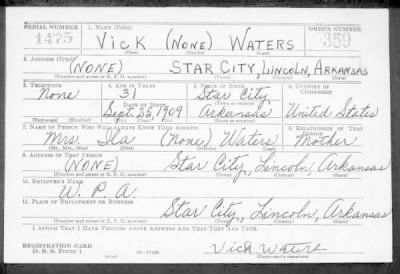 SERIAL NUMBER 1. NAME (Print) ORDER NUMBER
1475 VICK (NONE) WATERS 359
(First) (Middle) (Last)
2. ADDRESS (Print)
(NONE) STAR CITY, LINCOLN, ARKANSAS
(Number and street or R. F. D. number) (Town) (County) (State)
3. TELEPHONE 4. AGE IN YEARS 5. PLACE OF BIRTH 6. COUNTRY OF CITIZENSHIP
None 31 Star City
DATE OF BIRTH (Town or county)
Sept. 1909 Arkansas United States
(Exchange) (Number) (Mo.) (Day) (Yr.) (State or country)
7. NAME OF PERSON WHO WILL ALWAYS KNOW YOUR ADDRESS 8. RELATIONSHIP OF THAT PERSON
Mrs. Ila (None) Waters Mother
(Mr., Mrs., Miss) (First) (Middle) (Last)
9. ADDRESS OF THAT PERSON
(NONE) Star City, Lincoln, Arkansas
(Number and street or R. F. D. number) (Town) (County) (State)
10. EMPLOYER'S NAME
W. P. A.
11. PLACE OF EMPLOYMENT OR BUSINESS
Star City, Lincoln, Arkansas
(Number and street or R. F. D. number) (Town) (County) (State)
I AFFIRM THAT I HAVE VERIFIED ABOVE ANSWERS AND THAT THEY ARE TRUE.
REGISTRATION CARD
D. S. S. Form 1 Vick Waters
(Registrant's signature)